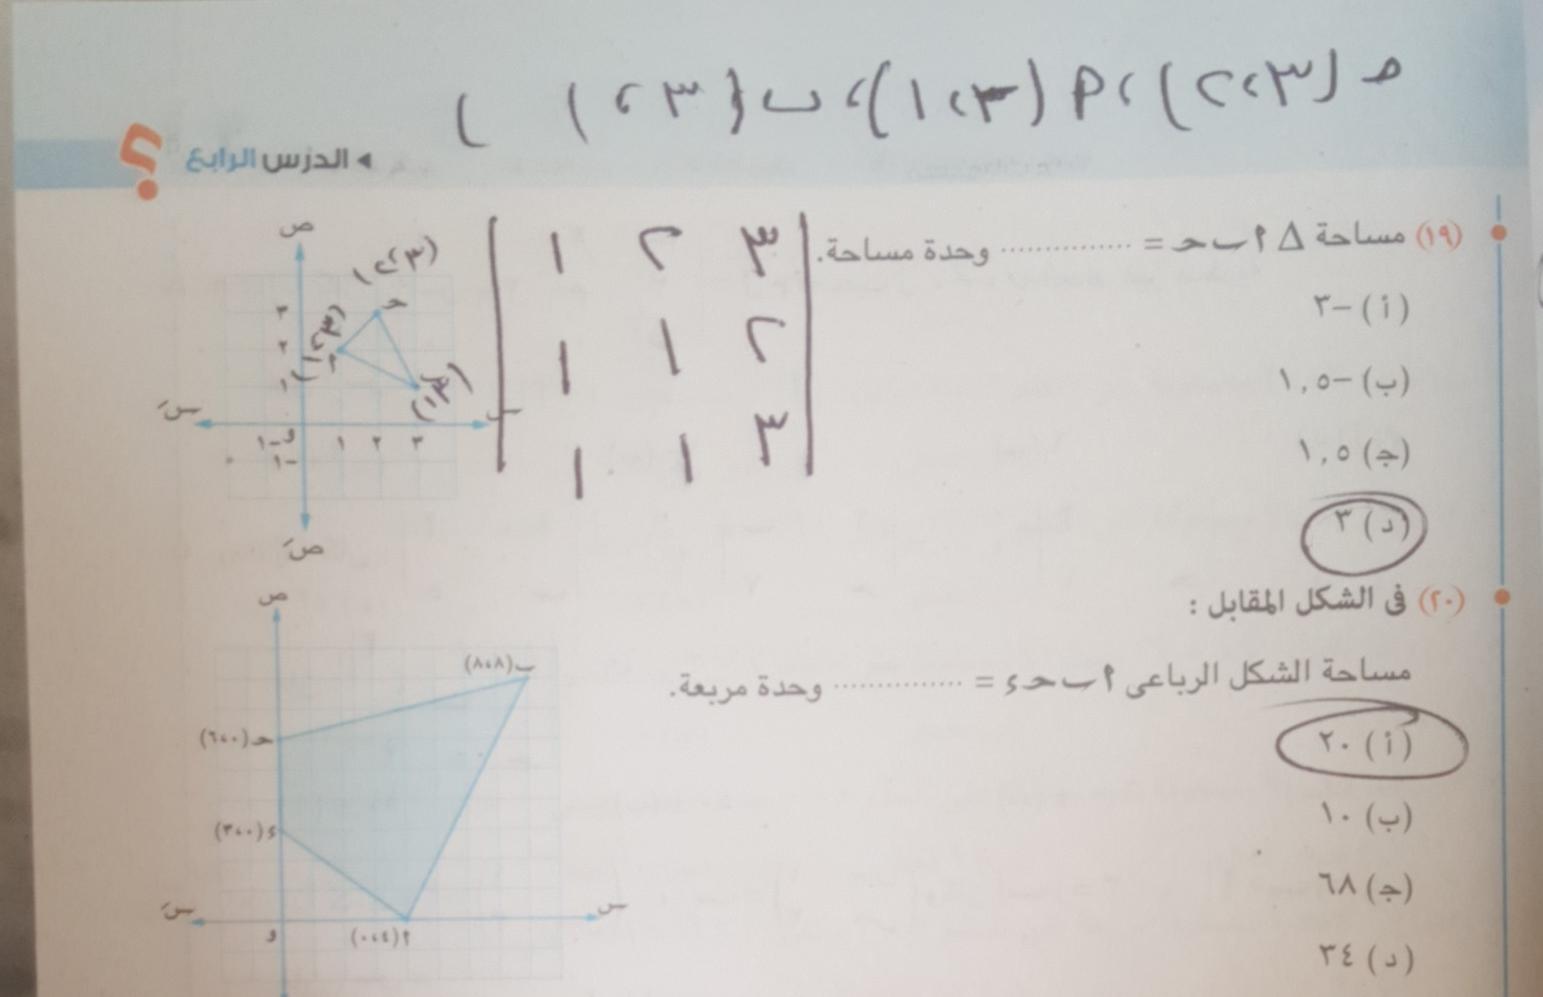 ح (٣،٢)، م (٣،١)، ب (٣،١)
◂ الدرس الرابع
(١٩) مساحة Δ أ ب ح = ............... وحدة مساحة.
(أ) -٣
(ب) -١,٥
(ج) ١,٥
(د) ٣
٣ ٢ ١
٢ ١ ١
٣ ١ ١
ص
(٢،٣)
ح
٣
٢
١
س
سَ
-١ و ١ ٢ ٣
-١
صَ
(٢٠) فى الشكل المقابل :
مساحة الشكل الرباعى أ ب ح ء = ............... وحدة مربعة.
(أ) ٢٠
(ب) ١٠
(ج) ٦٨
(د) ٣٤
ص
ب (٨،٨)
ح (٠،٦)
ء (٠،٣)
س
سَ
و
أ (٤،٠)